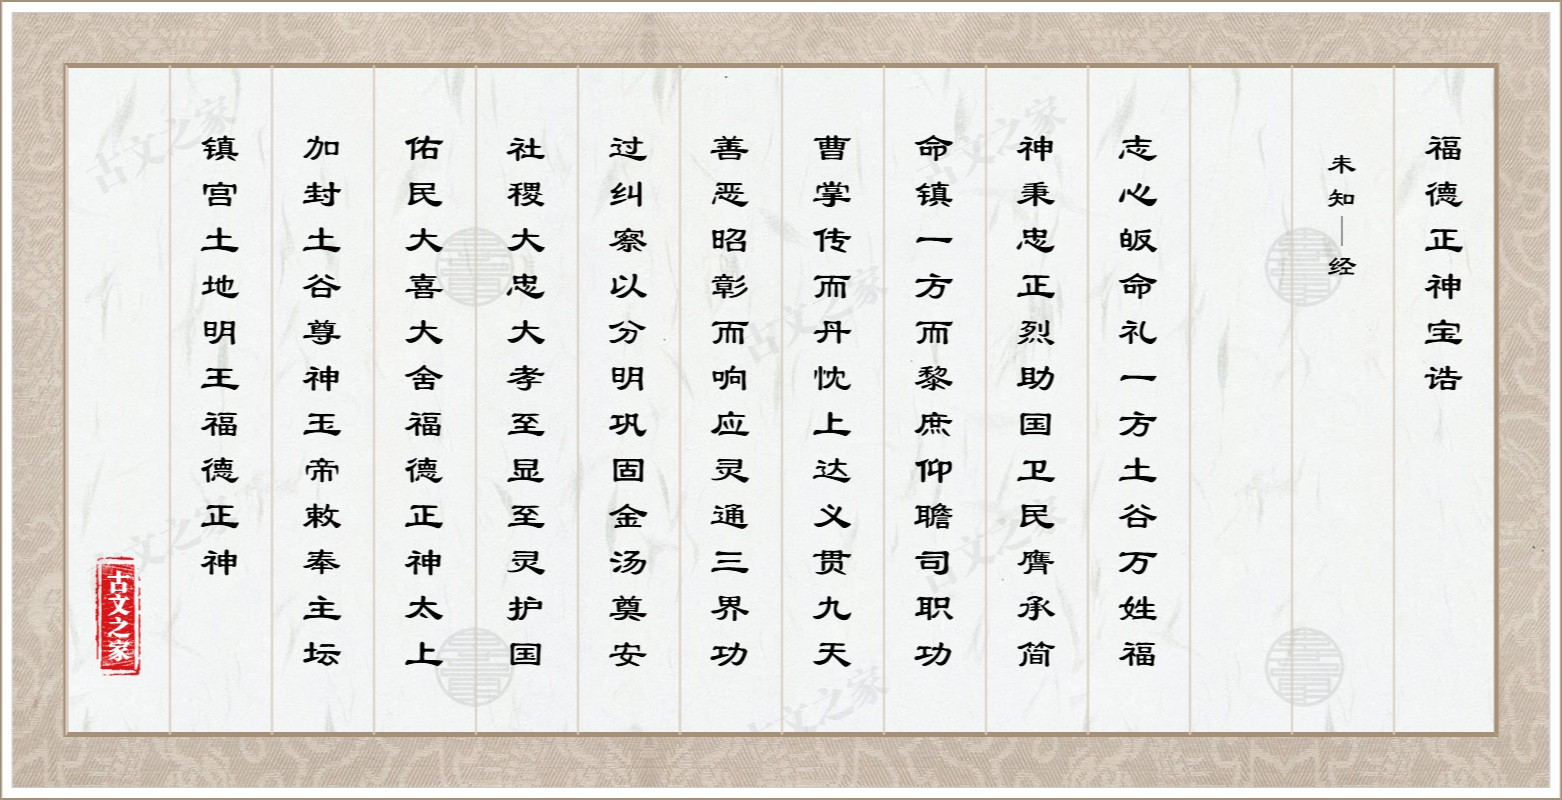 福德正神宝诰
未知｜经
志心皈命礼一方土谷万姓福
神秉忠正烈助国卫民膺承简
命镇一方而黎庶仰瞻司职功
曹掌传而丹忱上达义贯九天
善恶昭彰而响应灵通三界功
过纠察以分明巩固金汤奠安
社稷大忠大孝至显至灵护国
佑民大喜大舍福德正神太上
加封土谷尊神玉帝敕奉主坛
镇宫土地明王福德正神
古文之家
古文之家
古文之家
古文之家
古文之家
古文之家
古文之家